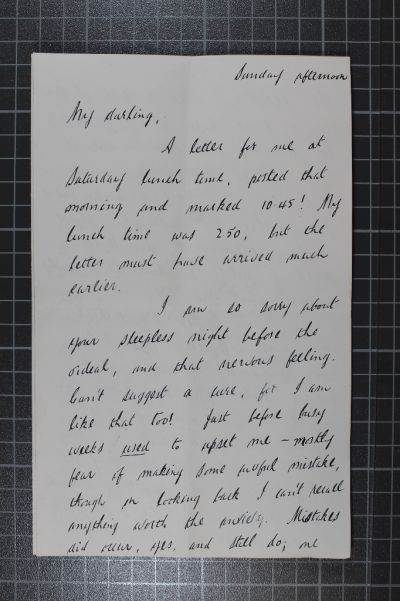 Sunday afternoon
My darling,
A letter for me at
Saturday lunch time, posted that
morning and marked 10.45! My
lunch time was 2.50, but the
letter must have arrived much
earlier.
I am so sorry about
your sleepless night before the
ordeal, and that nervous feeling.
Can't suggest a cure, for I am
like that too! Just before busy
weeks used to upset me – mostly
fear of making some awful mistake,
though on looking back I can't recall
anything worth the anxiety. Mistakes
did occur, yes, and still do; one